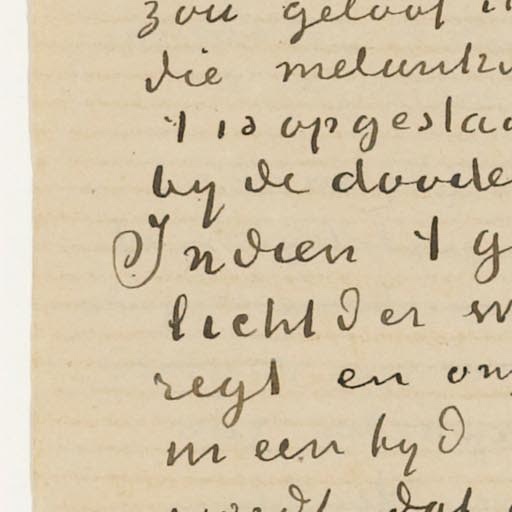 zou geloof
die melank
't is opgesla
by de doode
Indien 't g
licht der w
regt en on
in een tyd
wordt dat